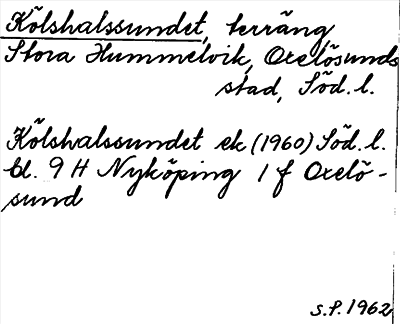 Kölshalssundet, terräng
Stora Hummelvik, Oxelösunds
stad, Söd. l.
Kölshalssundet ek (1960) Söd. l.
bl. 9 H Nyköping 1 f Oxelö-
sund
S.P. 1962